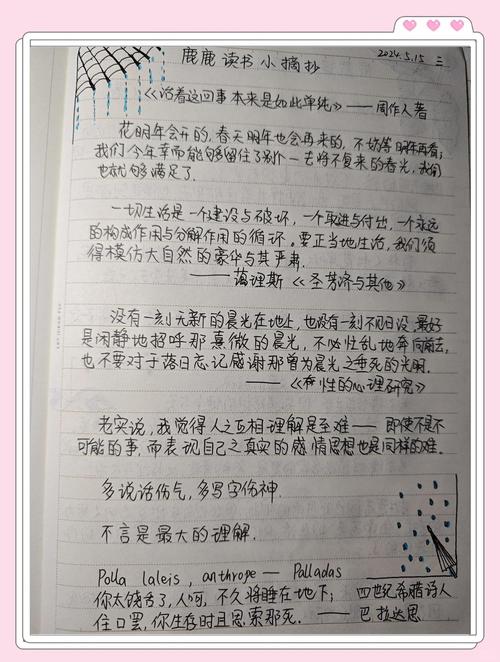 鹿鹿读书小摘抄
2024.5.15 三
《活着这回事本来是如此单纯》——周作人著
花明年会开的，春天明年也会再来的，不妨等明年再看；
我们今年幸而能够留住了别个一去将不复来的春光，我们
也就够满足了.
一切生活是一个建设与破坏，一个取进与付出，一个永远
的构成作用与分解作用的循环。要正当地生活，我们须
得模仿大自然的豪华与其严肃.
——蔼理斯《圣芳济与其他》
没有一刻无新的晨光在地上，也没有一刻不见日没，最好
是闲静地招呼那熹微的晨光，不必忙乱地奔向前去，
也不要对于落日忘记感谢那曾为晨光之垂死的光明.
——《 性的心理研究》
老实说，我觉得人之互相理解是至难——即使不是不
可能的事，而表现自己之真实的感情思想也是同样的难.
多说话伤气，多写字伤神.
不言是最大的理解.
Polla laleis, anthrope — Palladas
你太饶舌了，人呵，不久将睡在地下；
住口罢，你生存时且思索那死.
四世纪希腊诗人
——巴拉达思